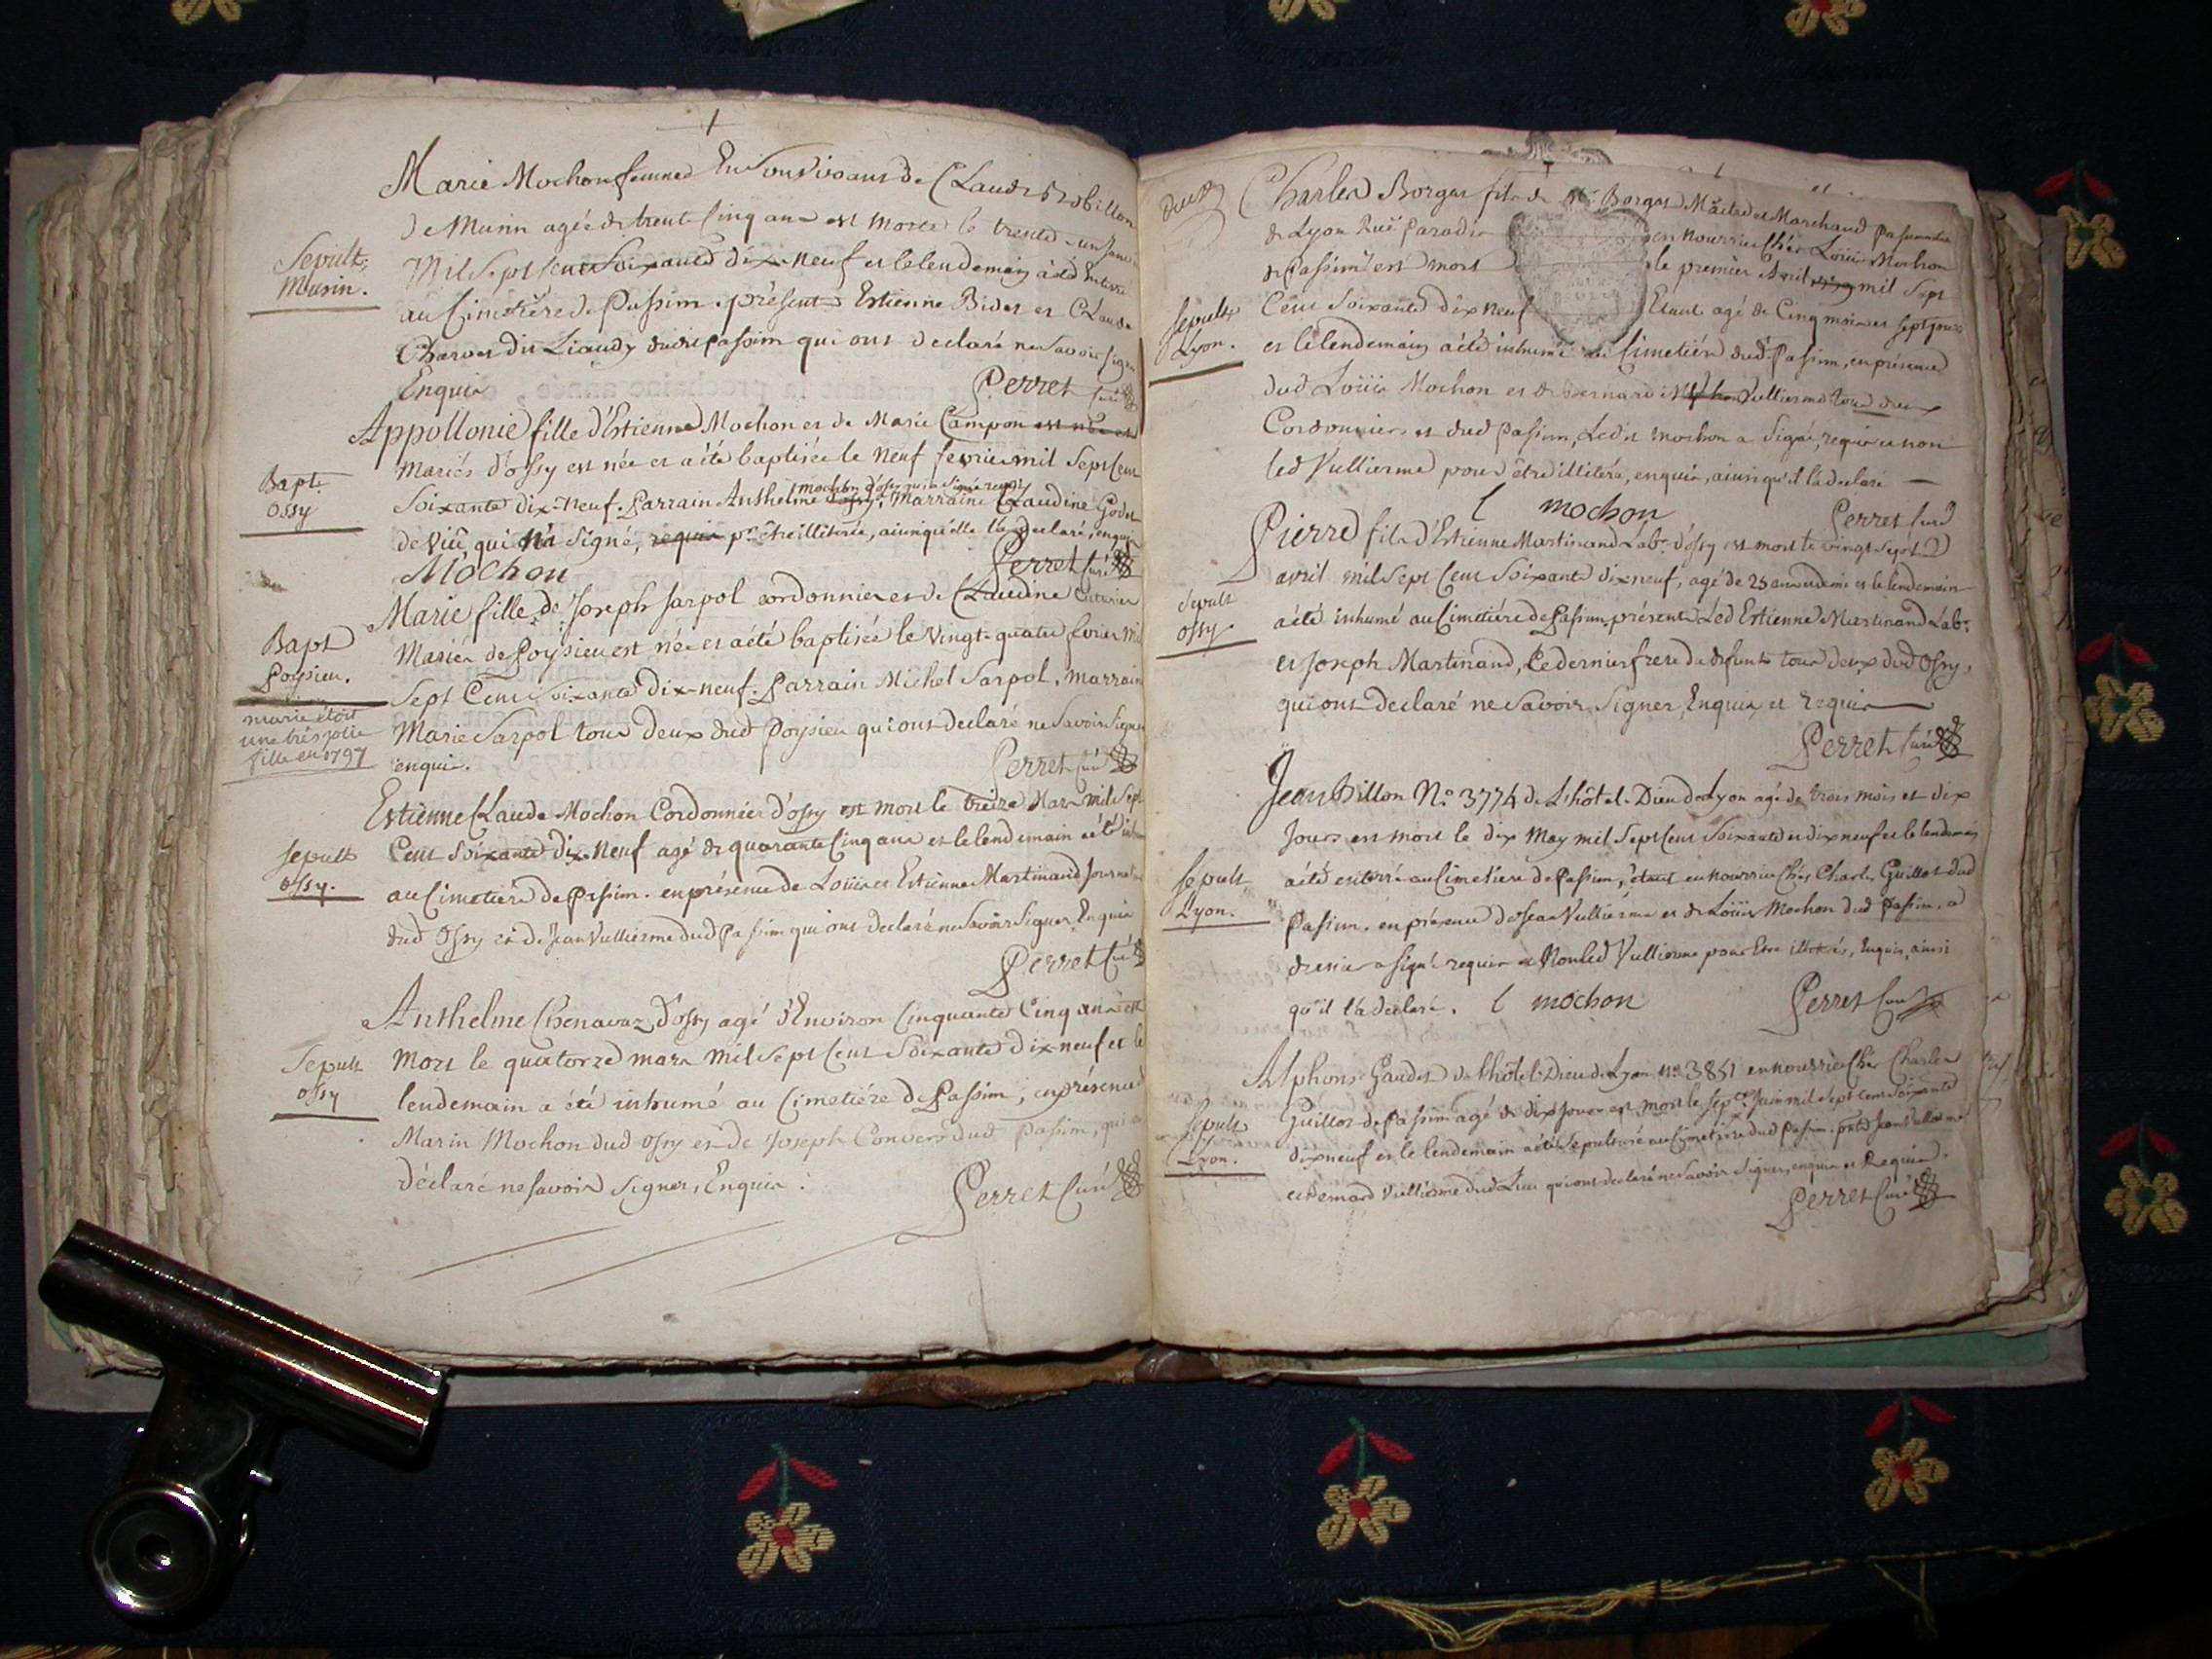 Marie Mochon femme En Son vivant de Claude Robillon
de Musin agée de trente Cinq ans est morte le trente-un Janv
Sepult:
Musin.
Mil Sept Cent Soixante dix-Neuf et le lendemain a été Enterré
au Cimetière de Passim. présents Estienne Bidet et Claude
Charvet dit Liaudy dudit passim qui ont declaré ne Savoir signer
Enquis
Perret Curé
Appollonie fille d'Estienne Mochon et de Marie Campon est née et
Bapt.
Ossy
Mariés d'ossy est née et a été baptisée le Neuf fevrier mil Sept Cent
mochon d'ossy qui a signé requis
Soixante dix-Neuf. Parrain Anthelme d'ossy. Marraine Claudine Godet
de Viû, qui n'a signé, requis pr être illiterée, ainsi qu'elle l'a declaré, enquis
Mochon
Perret Curé
Marie fille de Joseph Sarpol cordonnier et de Claudine
Bapt
Poysieu.
Mariés de Poysieu est née et a été baptisée le Vingt-quatre fevrier Mil
Sept Cent Soixante Dix-neuf. Parrain Michel Sarpol, Marraine
marie étoit
une très jolie
fille en 1797
Marie Sarpol tous deux dud Poysieu qui ont declaré ne Savoir Signer
enquis.
Perret Curé
Estienne Claude Mochon Cordonnier d'ossy est mort le treize Mars mil Sept
Sepult
ossy.
Cent Soixante dix-Neuf agé de quarante Cinq ans et le lendemain a été
au Cimetière de Passim. en présence de Loüis et Estienne Martinand
dud Ossy et de Jean Vullierme dud Passim qui ont declaré ne Savoir Signer Enquis
Perret Curé
Anthelme Chenavaz d'ossy agé d'Environ Cinquante Cinq ans est
Sepult
ossy
Mort le quatorze mars Mil Sept Cent Soixante dix-neuf et le
lendemain a été inhumé au Cimetière de Passim, en présence
Marin Mochon dud ossy et de Joseph Convers dud Passim, qui
déclaré ne Savoir Signer, Enquis.
Perret Curé
Charles Borgat fils de Borgat Marchand
de Lyon Ruë Paradis en nourrice Chés Loüis Mochon
de Passim est mort le premier Avril mil Sept
Sepult
Lyon.
Cent Soixante dix Neuf Etant agé de Cinq mois et Sept jours
et le lendemain a été inhumé au Cimetière dud Passim, en présence
dud Loüis Mochon et de Bernard Vullierme tous deux
Cordonniers dud Passim, Ledit Mochon a Signé, requis et non
led Vullierme pour être illiteré, enquis, ainsi qu'il l'a declaré
l mochon
Perret Curé
Pierre fils d'Estienne Martinand Labr. d'ossy est mort le vingt Sept
avril mil Sept Cent Soixante dix neuf, agé de 25 ans et demi et le lendemain
Sepult
ossy.
a été inhumé au Cimetière de Passim, présents Led Estienne Martinand Labr.
et Joseph Martinand, Le dernier frere du defunt tous deux dud Ossy,
qui ont declaré ne Savoir Signer, Enquis et requis
Perret Curé
Jean Dillon No. 3774 de L'hôtel-Dieu de Lyon agé de trois mois et dix
Jours est mort le dix May mil Sept Cent Soixante et dix neuf et le lendemain
Sepult
Lyon.
a été enterré au Cimetière de Passim, étant en nourrice Chés Charles Guillot dud
Passim. en présence de Jean Vullierme et de Loüis Mochon dud Passim. a
dernier a signé requis et Non led Vullierme pour Etre illiterés, Enquis, ainsi
qu'il l'a declaré. l mochon
Perret Curé
Alphons Gaudet de L'hôtel-Dieu de Lyon no. 3851 en nourrice Chés Charles
Sepult
Lyon.
Guillot de Passim agé de dix Jours est mort le Sept Juin mil Sept Cent Soixante
dix neuf et le lendemain a été Sepulturé au Cimetière dud Passim. Jean Vullierme
et Bernard Vullierme dud Lieu qui ont declaré ne Savoir Signer, enquis et Requis.
Perret Curé